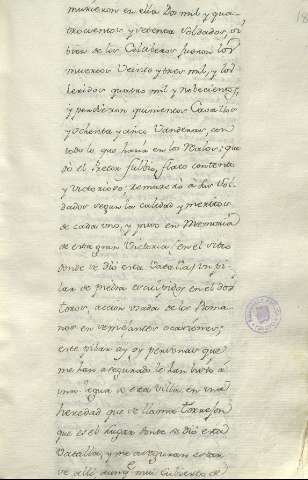 murieron en ella Dos mil y qua-
trocientos y setenta soldados, si
bien de los Celtiberos fueron los
muertos Veinte y tres mil, y los
heridos quatro mil y
y perdieron quinientos Cavallos
y ochenta y cinco Vanderas, con
todo lo que havia en los Reales; que-
dò el Pretor fulbio flaco contento
y Victorioso; remunerò a sus Sol-
dados segun la calidad y meritos
de cada uno, y puso en Memoria
de esta gran Victoria (en el sitio
donde se diò esta Batalla) un pi-
lar de piedra esculpidos en el dos
toros, accion usada de los Roma-
nos en semejantes ocasiones;
este pilar ay oy personas que
me han asegurado le han visto a
una legua de esta Villa, en una
heredad que se llama torrejon
que es el lugar donde se diò esta
Vatalla, y me aseguran estar
se alli aunq. mui cubierto de